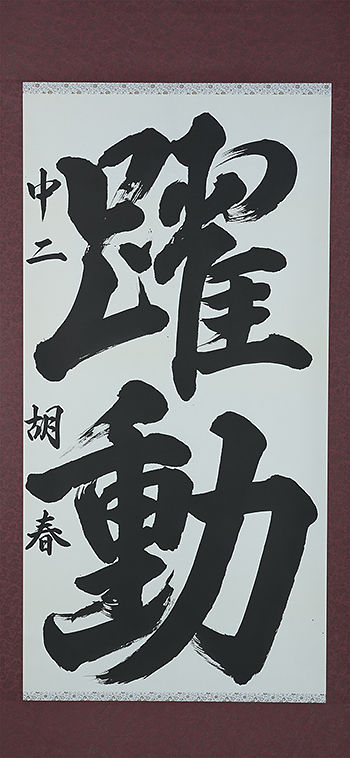 躍動
中二 胡春